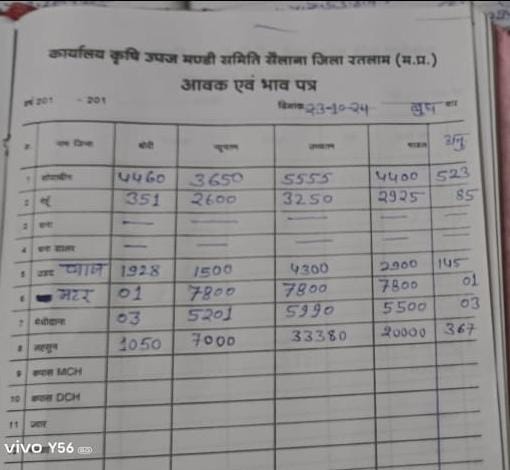 कार्यालय कृषि उपज मण्डी समिति सैलाना जिला रतलाम (म.प्र.)
आवक एवं भाव पत्र
वर्ष 201 - 201 दिनांक 23-10-24 बुध वार
क्र. नाम जिन्स बोरी न्यूनतम उच्चतम माडल अनु
1 सोयाबीन 4460 3650 5555 4400 523
2 गेहूं 351 2600 3250 2925 85
3 चना — — — — —
4 चना डालर — — — — —
5 उड़द प्याज 1928 1500 4300 2900 145
6 मटर 01 7800 7800 7800 01
7 मेथीदाना 03 5201 5990 5500 03
8 लहसुन 1050 7000 33380 20000 367
9 कपास MCH
10 कपास DCH
11 ज्वार
vivo Y56